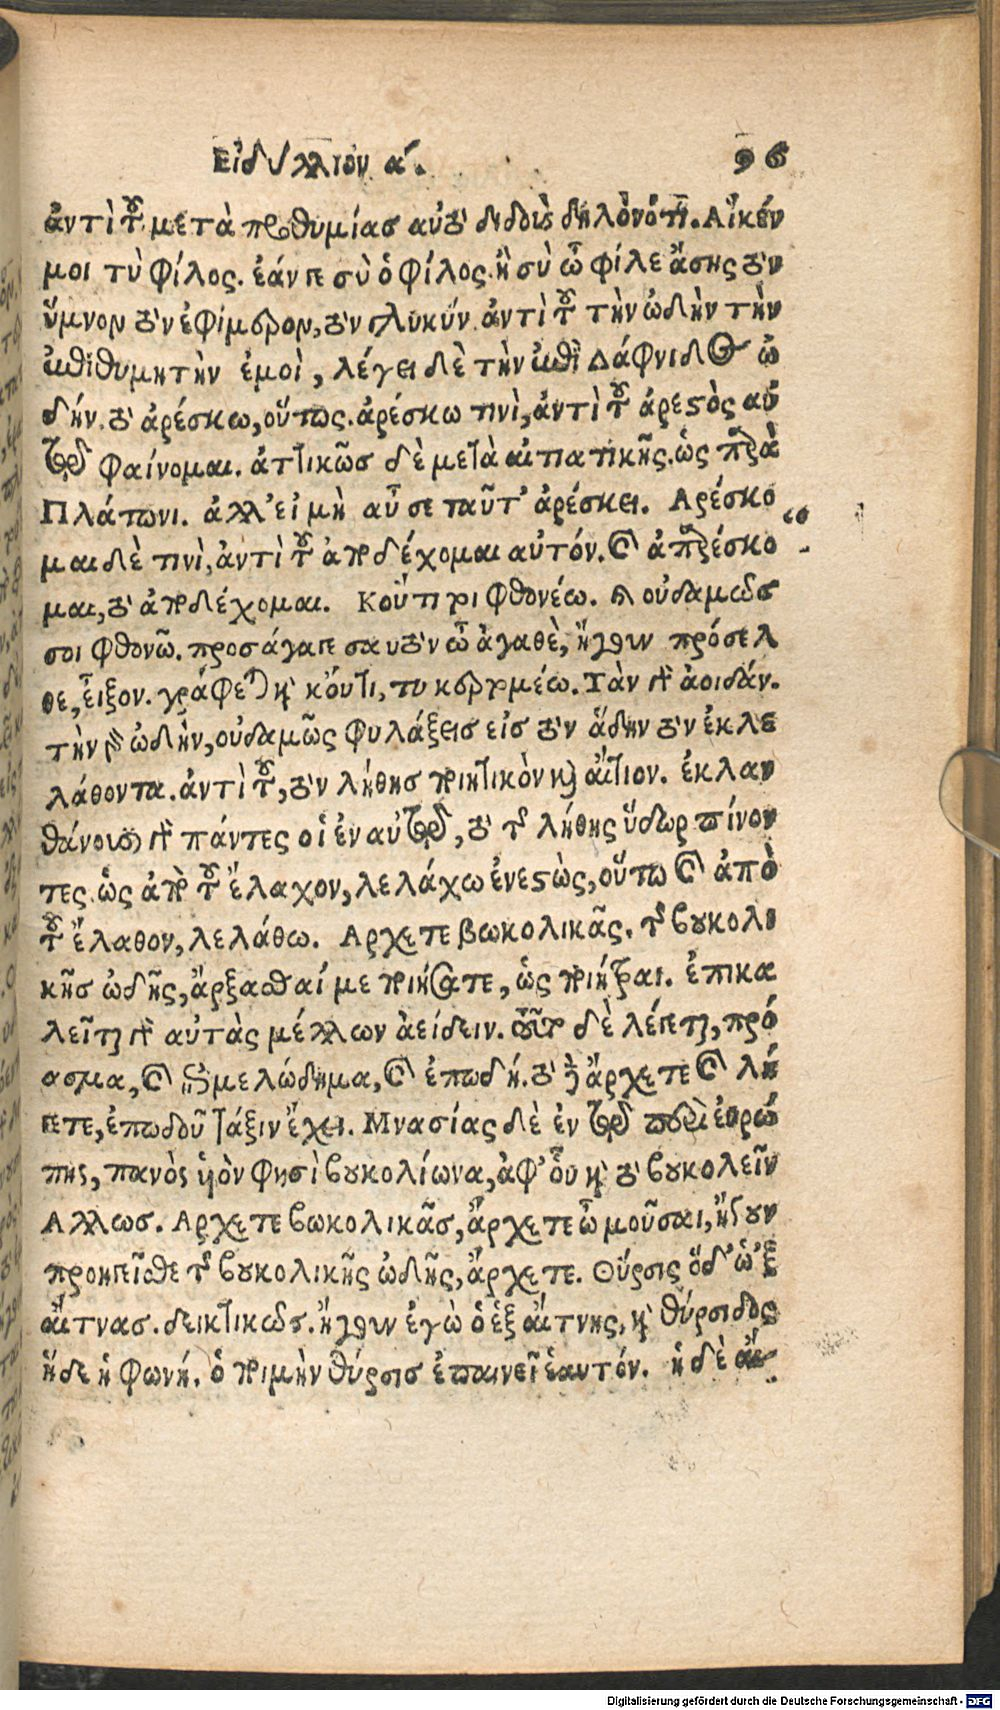 Εἰδύλλιον α΄. 96
ἀντὶ τοῦ μετὰ προθυμίας αὐτὸ διδοὺς δηλονότι. Αἴκέν
μοι τὺ φίλος. ἐάν πε σὺ ὁ φίλος. ἢ σὺ ὦ φίλε ἄσῃς τὸν
ὕμνον τὸν ἐφίμερον, τὸν γλυκύν. ἀντὶ τοῦ τὴν ᾠδὴν τὴν
ἐπιθυμητὴν ἐμοὶ, λέγει δὲ τὴν ἐπὶ Δάφνιδος ᾠ
δήν. τὸ ἀρέσκω, οὕτως. ἀρέσκω τινὶ, ἀντὶ τοῦ ἀρεστὸς αὐ
τῷ φαίνομαι. ἀττικῶς δὲ μετὰ αἰτιατικῆς. ὡς παρὰ
Πλάτωνι. ἀλλ' εἰ μὴ αὖ σε ταῦτ' ἀρέσκει. Αρέσκο
μαι δὲ τινὶ, ἀντὶ τοῦ ἀποδέχομαι αὐτόν. καὶ ἀπαρέσκο
μαι, τὸ ἀποδέχομαι. Κοὔτι τοι φθονέω. καὶ οὐδαμῶς
σοι φθονῶ. προσάγαγε σαυτὸν ὦ ἀγαθὲ, ἤγουν πρόσελ
θε, εἶξον. γράφεται καὶ κοὔτι, τυ κερτομέω. Τὰν γὰρ ἀοιδάν.
τὴν γὰρ ᾠδὴν, οὐδαμῶς φυλάξεις εἰς τὸν ἅδην τὸν ἐκλε
λάθοντα. ἀντὶ τοῦ, τὸν λήθης ποιητικὸν καὶ αἴτιον. ἐκλαν
θάνουσι γὰρ πάντες οἱ ἐν αὐτῷ, τὸ τῆς λήθης ὕδωρ πίνον
τες. ὡς ἀπὸ τοῦ ἔλαχον, λελάχω ἐνεστὼς, οὕτω καὶ ἀπὸ
τοῦ ἔλαθον, λελάθω. Αρχετε βωκολικᾶς. τῆς βουκολι
κῆς ᾠδῆς, ἄρξασθαί με ποιήσατε, ὡς ποιῆσαι. ἐπικα
λεῖται γὰρ αὐτὰς μέλλων ἀείδειν. τοῦτο δὲ λέγεται, πρό
ασμα, καὶ προμελώδημα, καὶ ἐπωδή. τὸ γὰρ ἄρχετε καὶ λή
γετε, ἐπωδοῦ τάξιν ἔχει. Μνασίας δὲ ἐν τῷ περὶ εὐρώ
πης, πανὸς υἱὸν φησὶ βουκολίωνα, ἀφ' οὗ καὶ τὸ βουκολεῖν
Αλλως. Αρχετε βωκολικᾶς, ἄρχετε ὦ μοῦσαι, ἤγουν
προηγεῖσθε τῆς βουκολικῆς ᾠδῆς, ἄρχετε. Θύρσις ὅδ' ὡ' ξ
αἴτνας. δεικτικῶς. ἤγουν ἐγὼ ὁ ἐξ αἴτνης, καὶ θύρσιδος
ἥδε ἡ φωνή. ὁ ποιμὴν θύρσις ἐπαινεῖ ἑαυτόν. ἡ δὲ αἴ-
Digitalisierung gefördert durch die Deutsche Forschungsgemeinschaft - DFG